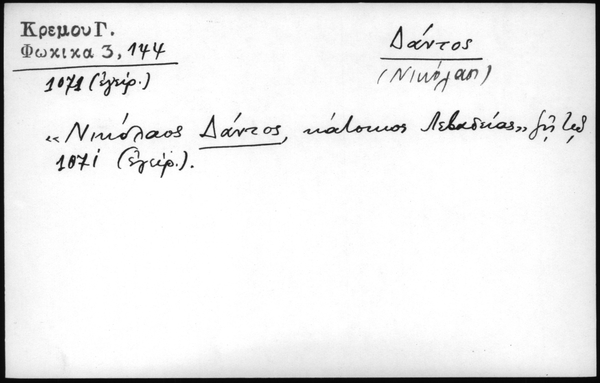 Κρεμου Γ.
Φωκικα 3, 144
1071 (ἐγείρ.)
Δάντος
(Νικόλαος)
«Νικόλαος Δάντος, κάτοικος Λεβαδείας» ζῇ τῷ
1071 (ἐγείρ.).